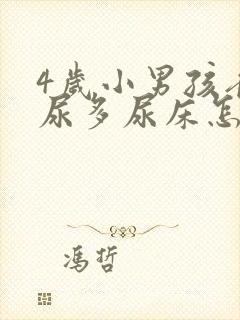 4岁小男孩
尿多尿床怎
冯哲